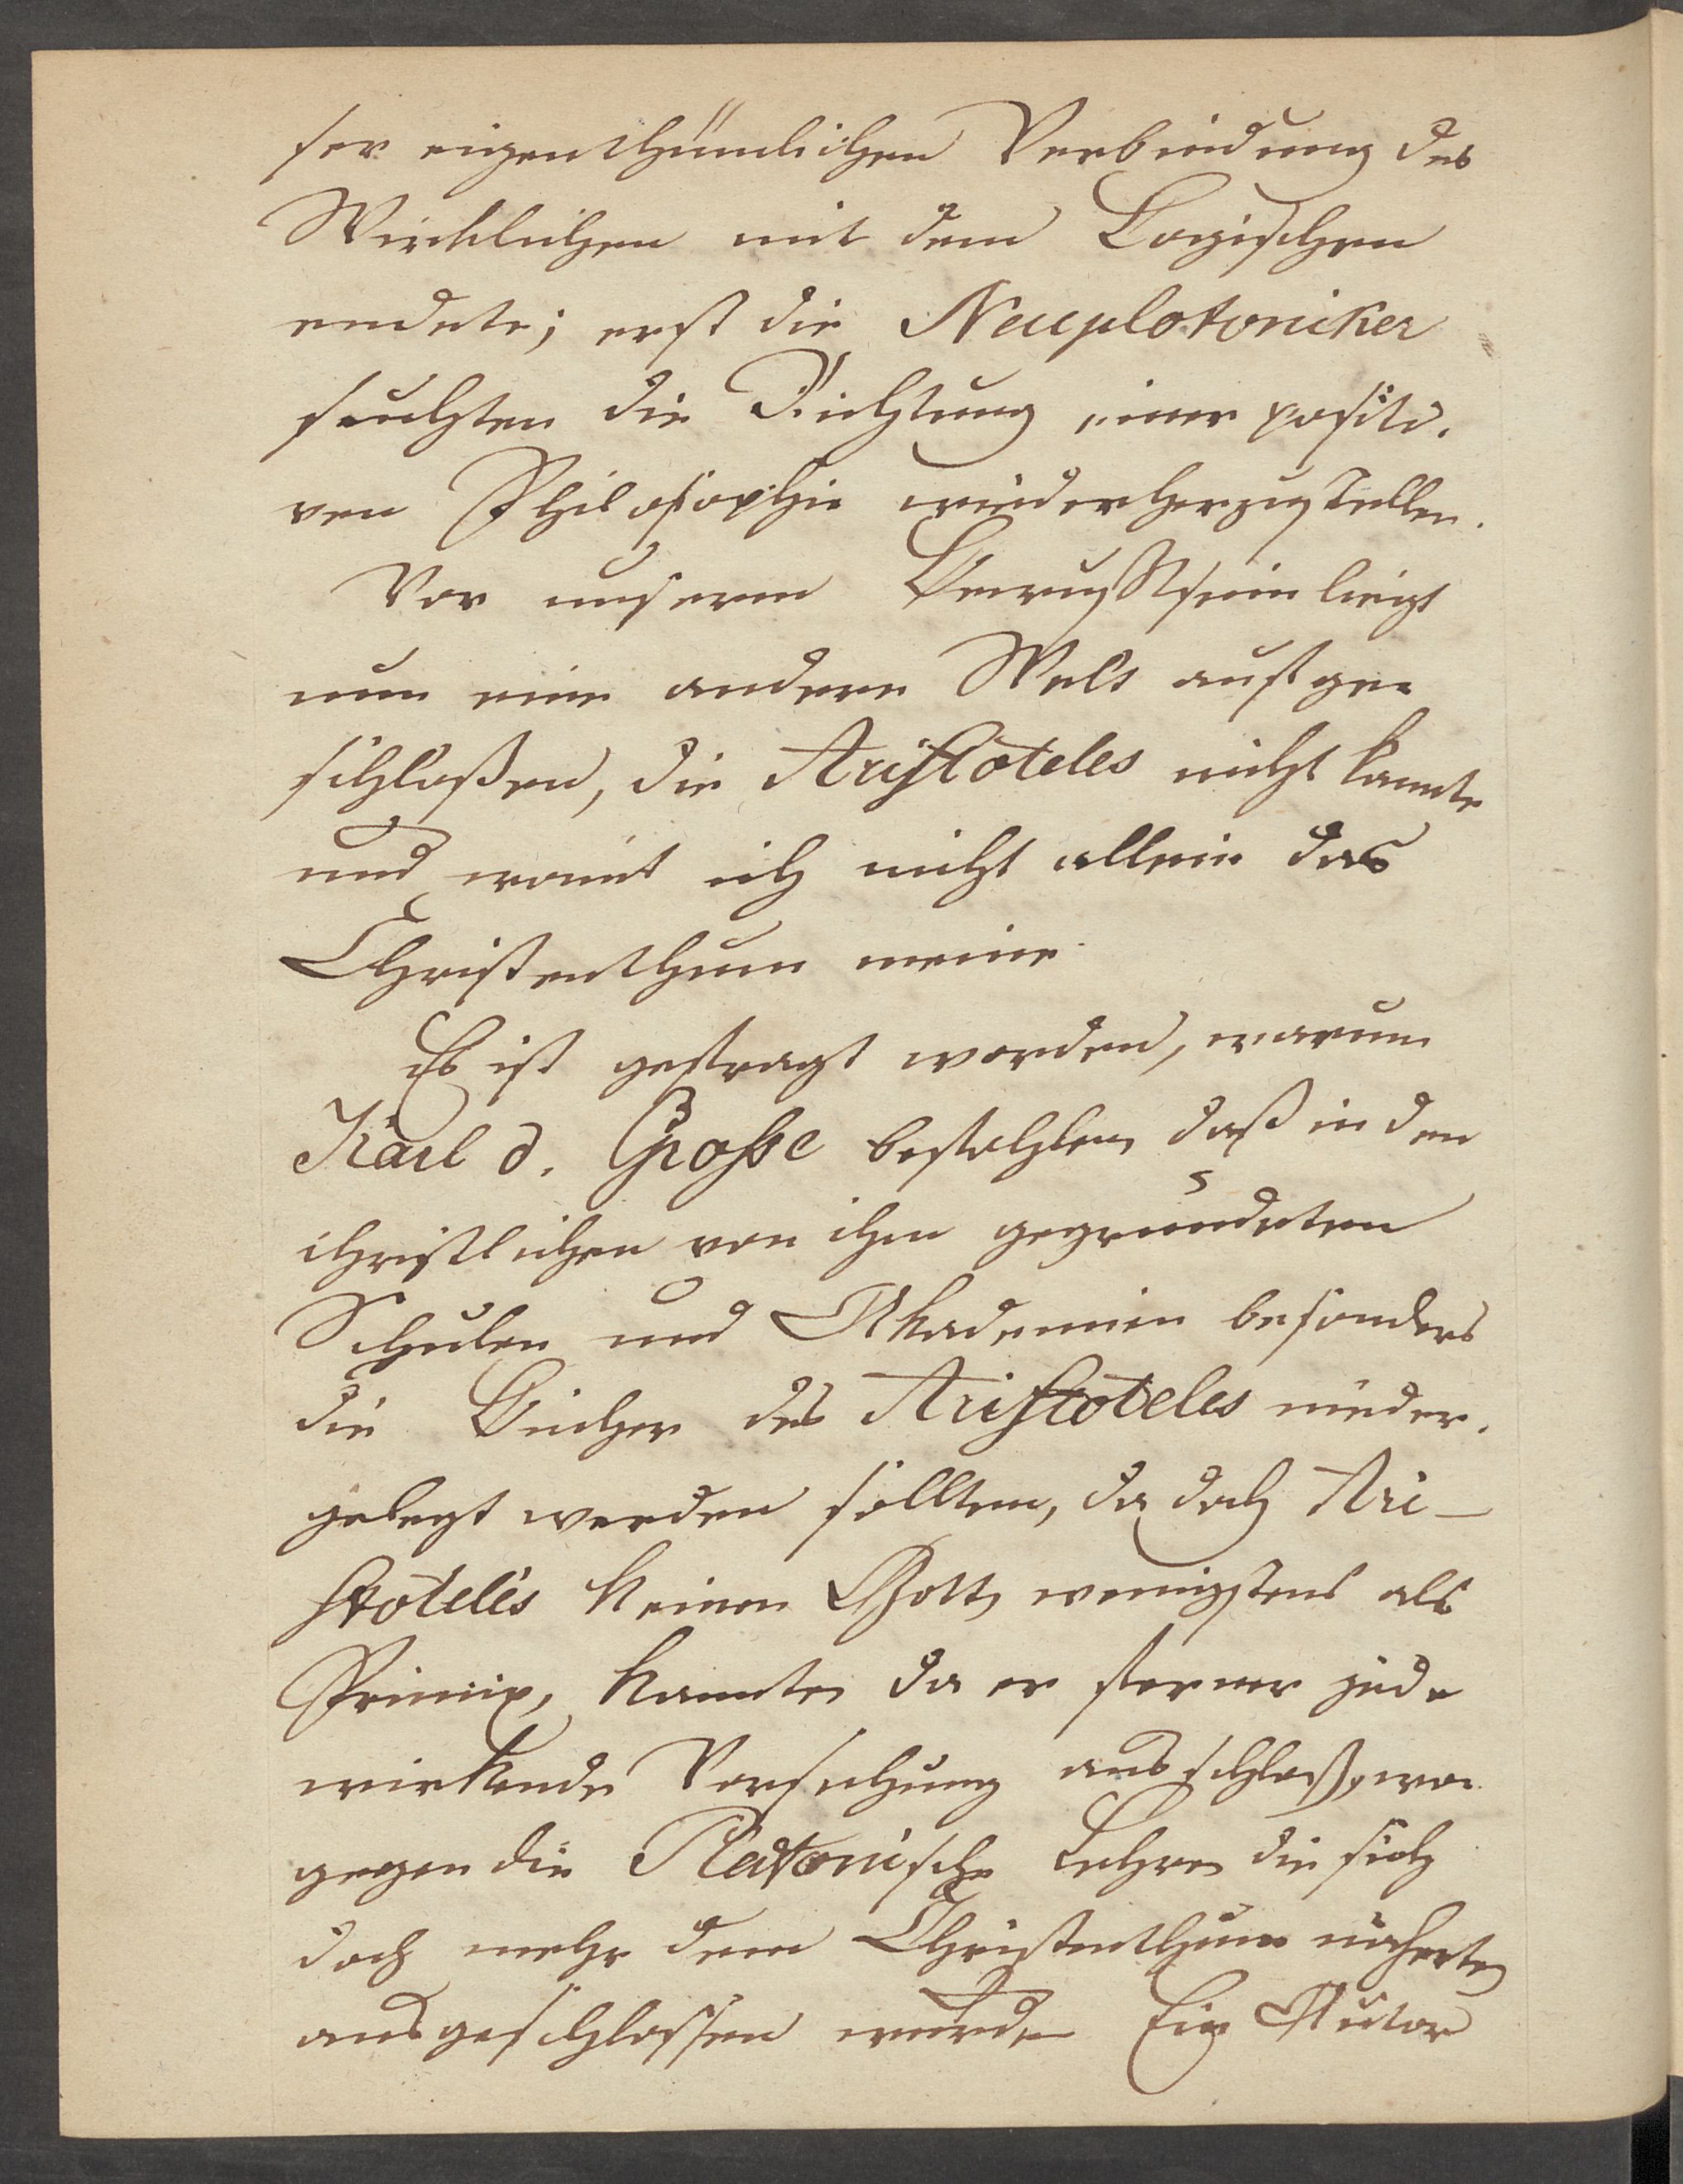 ser eigenthümlichen Verbindung des
Wirklichen mit dem Logischen
endete; erst die Neuplatoniker
suchten die Richtung einer positi-
ven Philosophie wiederherzustellen.
Vor unserem Bewußtsein liegt
nun eine andere Welt aufge-
schloßen, die Aristoteles nicht kannte
und womit ich nicht allein das
Christenthum meine.
Es ist gefragt worden, warum
Karl d. Große befohlen, daß in den
christlichen von ihm gegründeten
Schulen und Akademien besonders
die Bücher des Aristoteles nieder-
gelegt werden sollten, da doch Ari-
stoteles keinen Gott, wenigstens als
Prinzip, kannte, da er ferner jede
wirkende Vorsehung ausschloß, wo-
gegen die Platonische Lehre, die sich
doch mehr dem Christenthum näherte,
ausgeschlossen wurde. Ein Autor